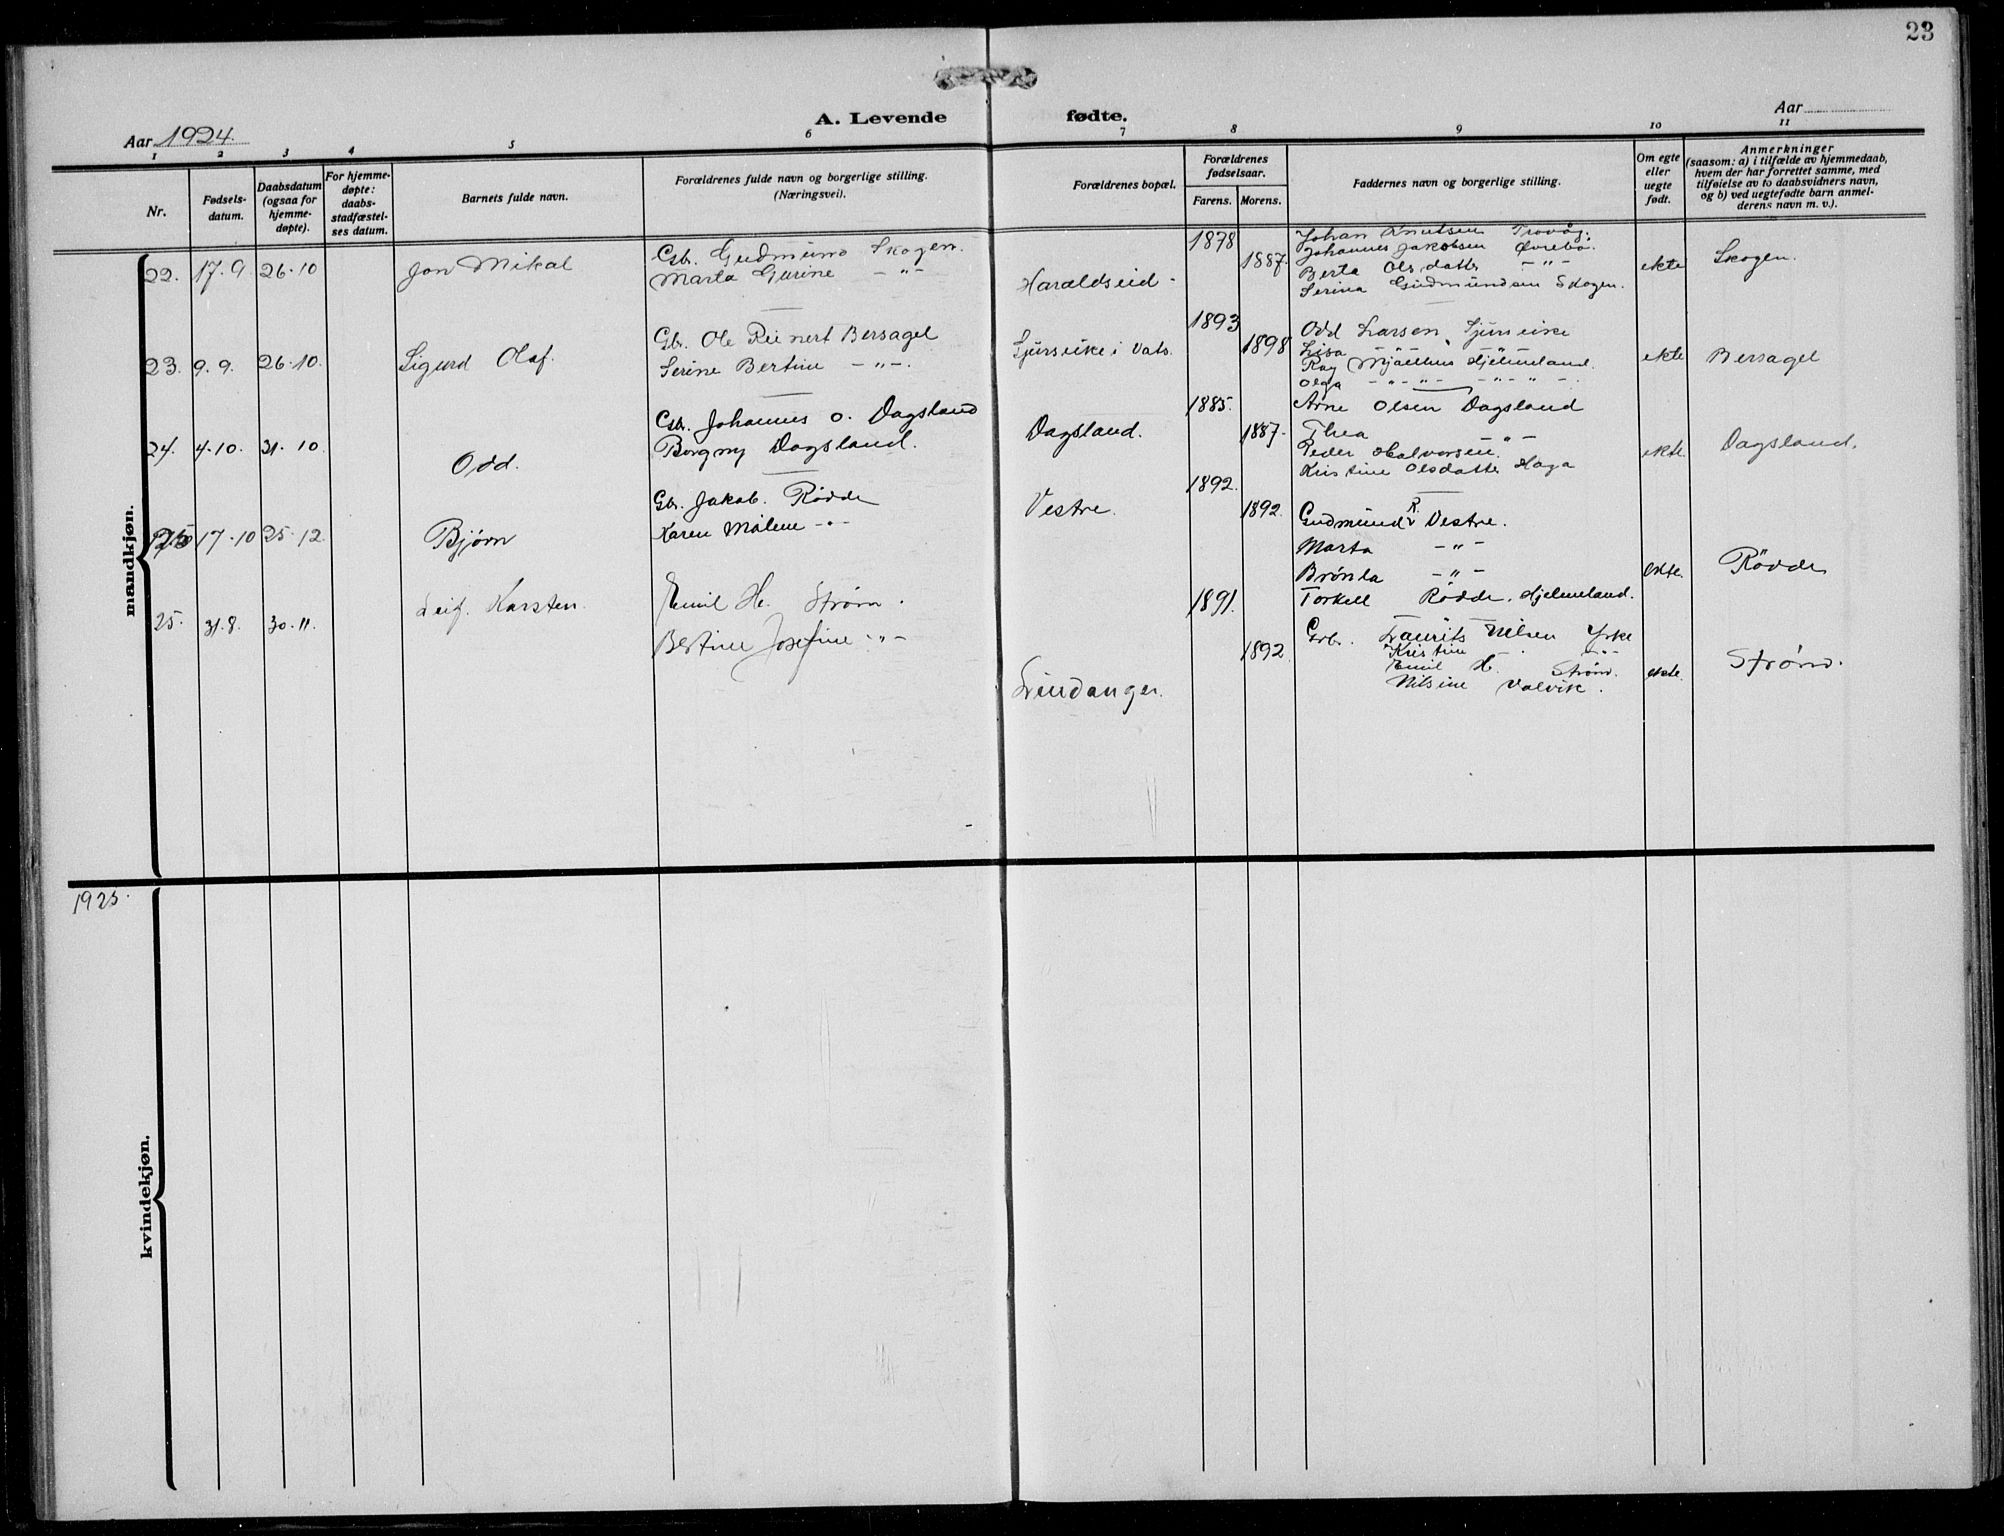 23
Aar 1924.
A. Levende fødte.
Aar
1 2 3 4 5 6 7 8 9 10 11
Nr.
Fødsels-
datum.
Daabsdatum
(ogsaa for
hjemme-
døpte).
For hjemme-
døpte:
daabs-
stadfæstel-
ses datum.
Barnets fulde navn.
Forældrenes fulde navn og borgerlige stilling.
(Næringsvei).
Forældrenes bopæl.
Forældrenes
fødselsaar.
Farens. Morens.
Faddernes navn og borgerlige stilling.
Om egte
eller
uegte
født.
Anmerkninger
(saasom: a) i tilfælde av hjemmedaab,
hvem der har forrettet samme, med
tilføielse av to daabsvidners navn,
og b) ved uegtefødte barn anmel-
derens navn m. v.).
mandkjøn.
22. 17.9. 26.10 Jon Mikal
Gb. Gudmund Skogen.
Marta Gurine -"-
Haraldseid -
1878
1887.
Johan Knutsen Trovåg.
Johannes Jakobsen Øvrebø.
Berta Olsdatter -"-
Serina Gudmundsen Skogen.
ekte
Skogen.
23. 9.9. 26.10. Sigurd Olaf.
Gb. Ole Reinert Bersagel
Serine Bertine -"-
Sjurseike i Vats.
1893
1898
Odd Larsen Sjurseike
Lisa -"- -"-
Hjelmeland.
Olga -"- -"- -"-
ekte
Bersagel
24. 4.10. 31.10. Odd.
Gb. Johannes O. Dagsland
Borgny Dagsland.
Dagsland.
1885.
1887.
Arne Olsen Dagsland
Thea -"-
Peder Halvorsen
Kristine Olsdatter Haga
ekte.
Dagsland.
25 17.10 25.12. Bjørn
Gb. Jakob Rødde
Karen Malene -"-
Vestre.
1892.
1892.
Gudmund R. Vestre.
Marta -"-
Brønla -"-
Torkell Rødde, Hjelmeland.
ekte.
Rödde
25. 31.8. 30.11. Leif Karsten.
Emil H. Strøm.
Bertine Josefine -"-
Lindanger.
1891.
1892
Gb. Laurits Nilsen Yrke
Kristine -"-
Emil H. Strøm.
Nilsine Valvik.
ekte.
Strøm.
1925.
kvindekjøn.